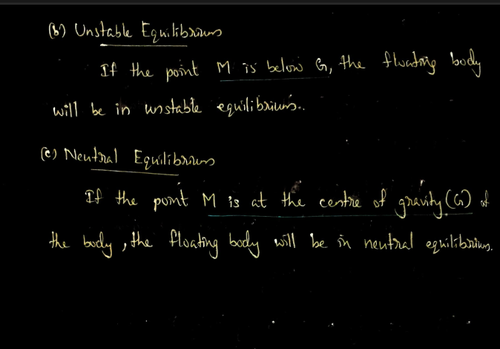 (b) Unstable Equilibrium
If the point M is below G, the floating body
will be in unstable equilibrium.
(c) Neutral Equilibrium
If the point M is at the centre of gravity (G) of
the body, the floating body will be in neutral equilibrium.